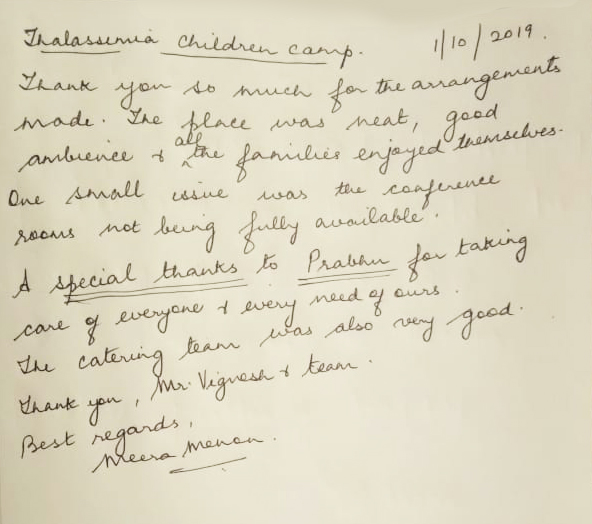 Thalassemia Children camp. 1/10/2019.
Thank you so much for the arrangements
made. The place was neat, good
ambience & all the families enjoyed themselves.
One small issue was the conference
rooms not being fully available.
A special thanks to Prabhu for taking
care of everyone & every need of ours.
The catering team was also very good.
Thank you, Mr. Vignesh & team.
Best regards,
Meera Menon.